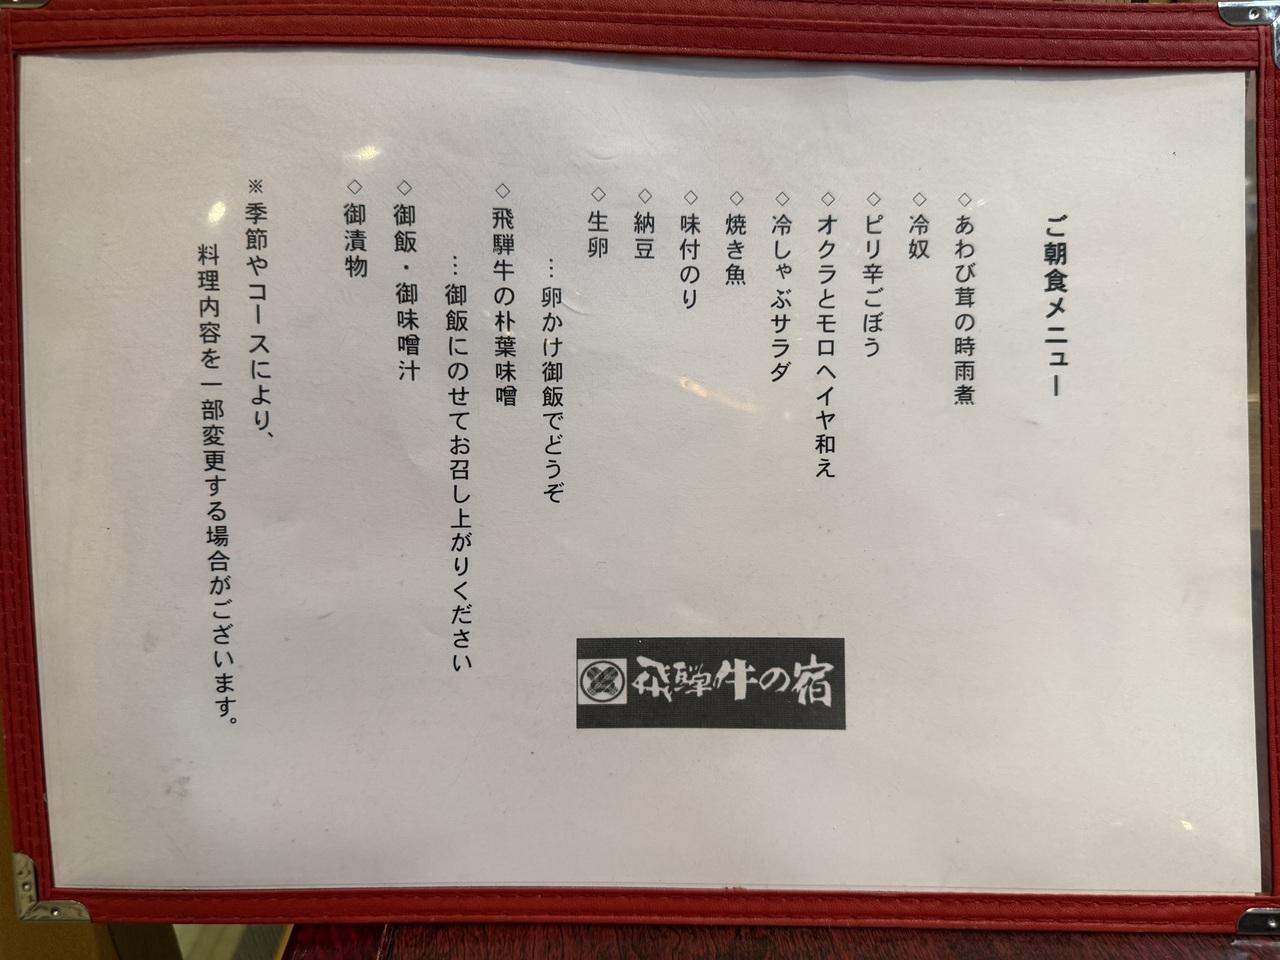 ご朝食メニュー
◇あわび茸の時雨煮
◇冷奴
◇ピリ辛ごぼう
◇オクラとモロヘイヤ和え
◇冷しゃぶサラダ
◇焼き魚
◇味付のり
◇納豆
◇生卵
…卵かけ御飯でどうぞ
◇飛騨牛の朴葉味噌
…御飯にのせてお召し上がりください
◇御飯・御味噌汁
◇御漬物
※季節やコースにより、
料理内容を一部変更する場合がございます。
飛騨牛の宿